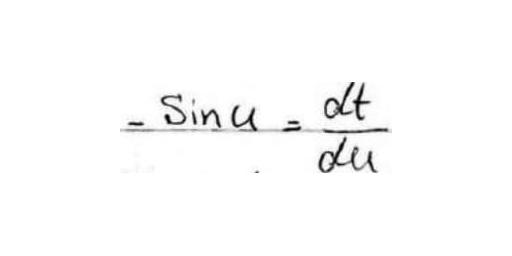 - Sin u = dt/du